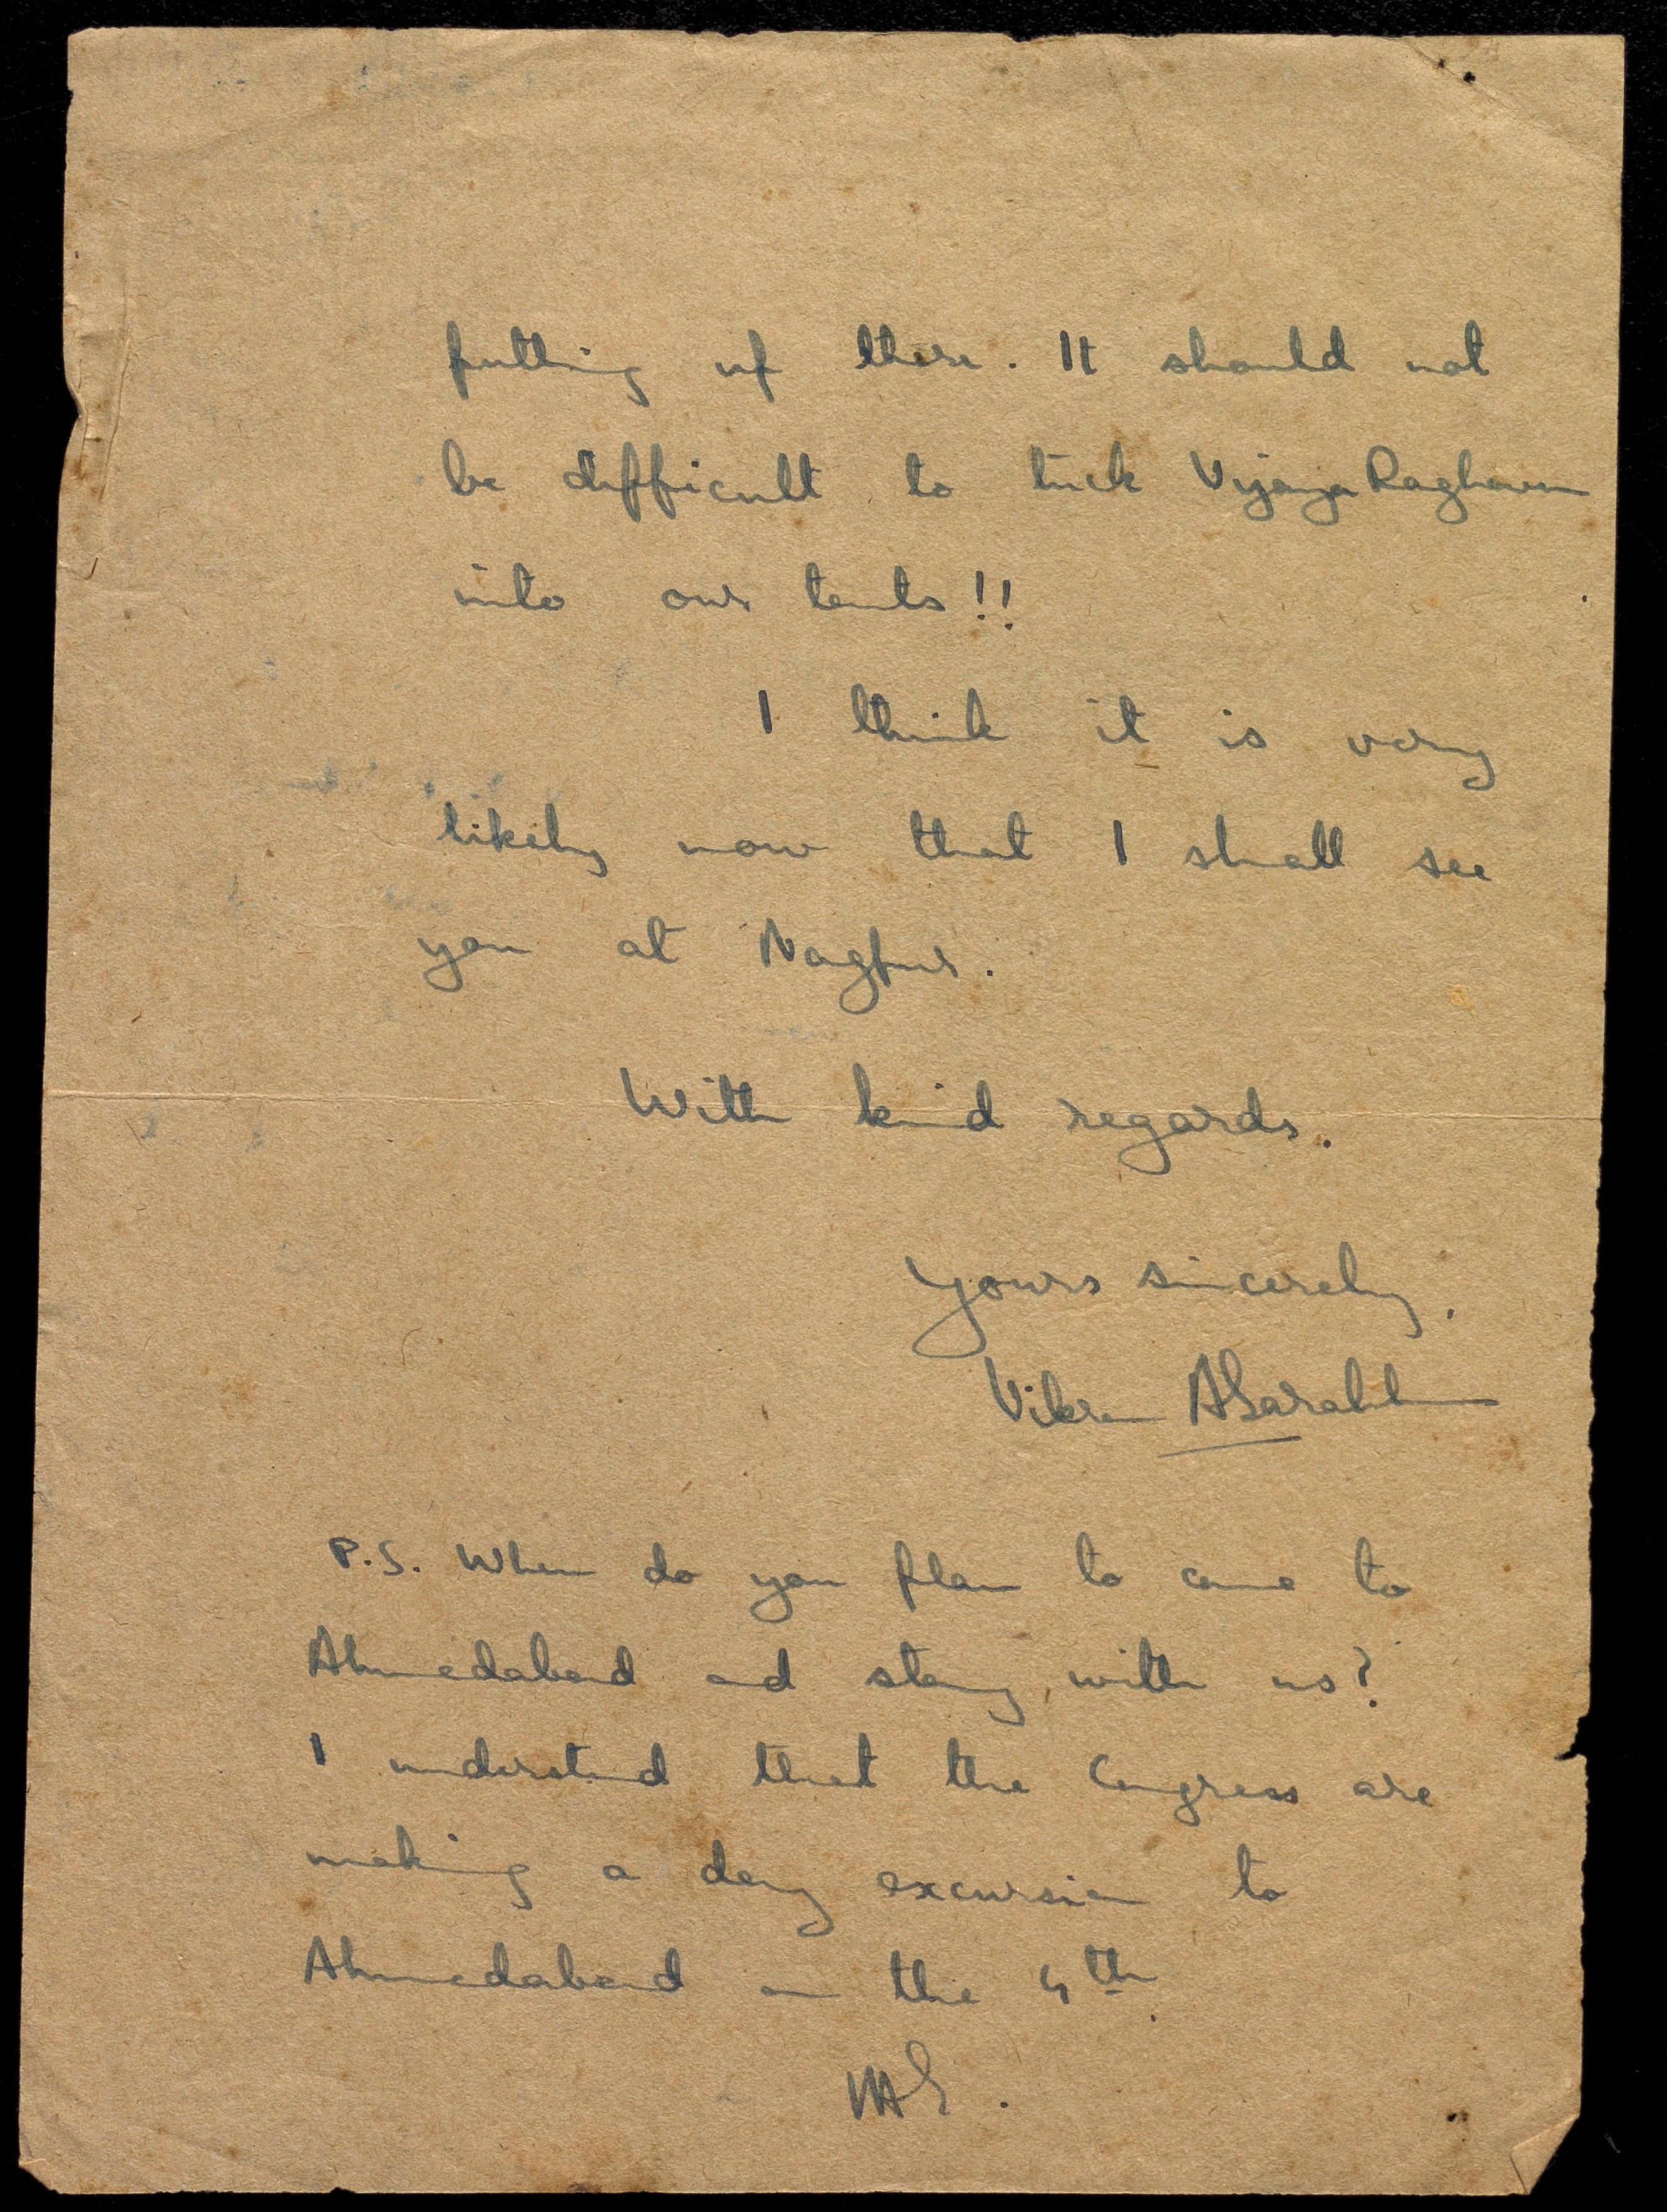 putting up there. It should not
be difficult to tuck Vijaya Raghavan
into our tents!!
I think it is very
likely now that I shall see
you at Nagpur.
With kind regards.
Yours sincerely,
Vikram A Sarabhai
P.S. When do you plan to come to
Ahmedabad and stay with us?
I understand that the Congress are
making a day excursion to
Ahmedabad on the 4th.
VAS.